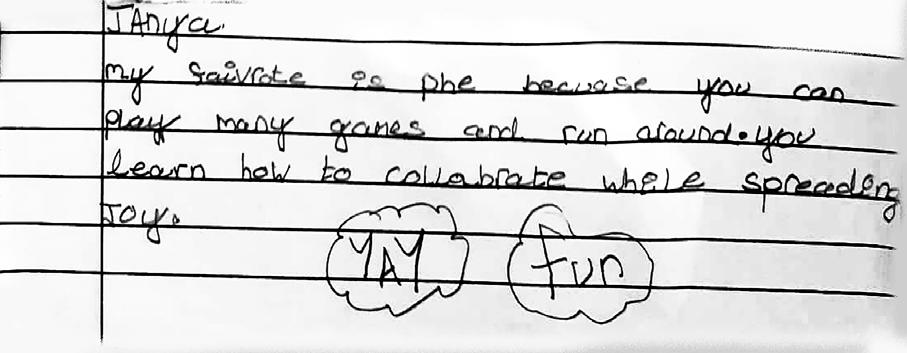 JAnya.
my faivrote is phe becuase you can
play many games and run around. you
learn how to collabrate while spreading
Joy.
YAY fun